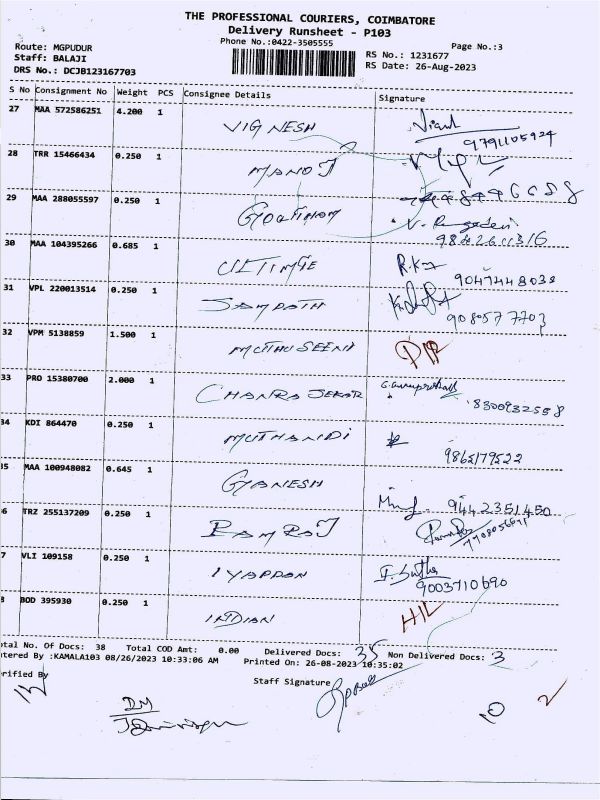 THE PROFESSIONAL COURIERS, COIMBATORE
Delivery Runsheet - P103
Phone No.:0422-3505555
Page No.:3
Route: MGPUDUR
Staff: BALAJI
DRS No.: DCJB123167703
RS No.: 1231677
RS Date: 26-Aug-2023
S No Consignment No Weight PCS Consignee Details Signature
27 MAA 572586251 4.200 1 VIGNESH
9791105924
28 TRR 15466434 0.250 1 MANOJ
29 MAA 288055597 0.250 1 GOWTHAM
30 MAA 104395266 0.685 1 ULTIMATE R.K
9047448038
31 VPL 220013514 0.250 1 SAMPATH
9080577703
32 VPM 5138859 1.500 1 MUTHU SEENI
33 PRO 15380700 2.000 1 CHANDRA SEKAR
8300932558
34 KDI 864470 0.250 1 MUTHANDI
9865179522
35 MAA 100948082 0.645 1 GANESH
9442351450
6 TRZ 255137209 0.250 1 RAMRAJ
7 VLI 109158 0.250 1 IYAPPAN
9003710690
8 BOD 395930 0.250 1 INDIAN
H/L
otal No. Of Docs: 38 Total COD Amt: 0.00 Delivered Docs: 35 Non Delivered Docs: 3
tered By :KAMALA103 08/26/2023 10:33:06 AM Printed On: 26-08-2023 10:35:02
rified By
Staff Signature
DM
2